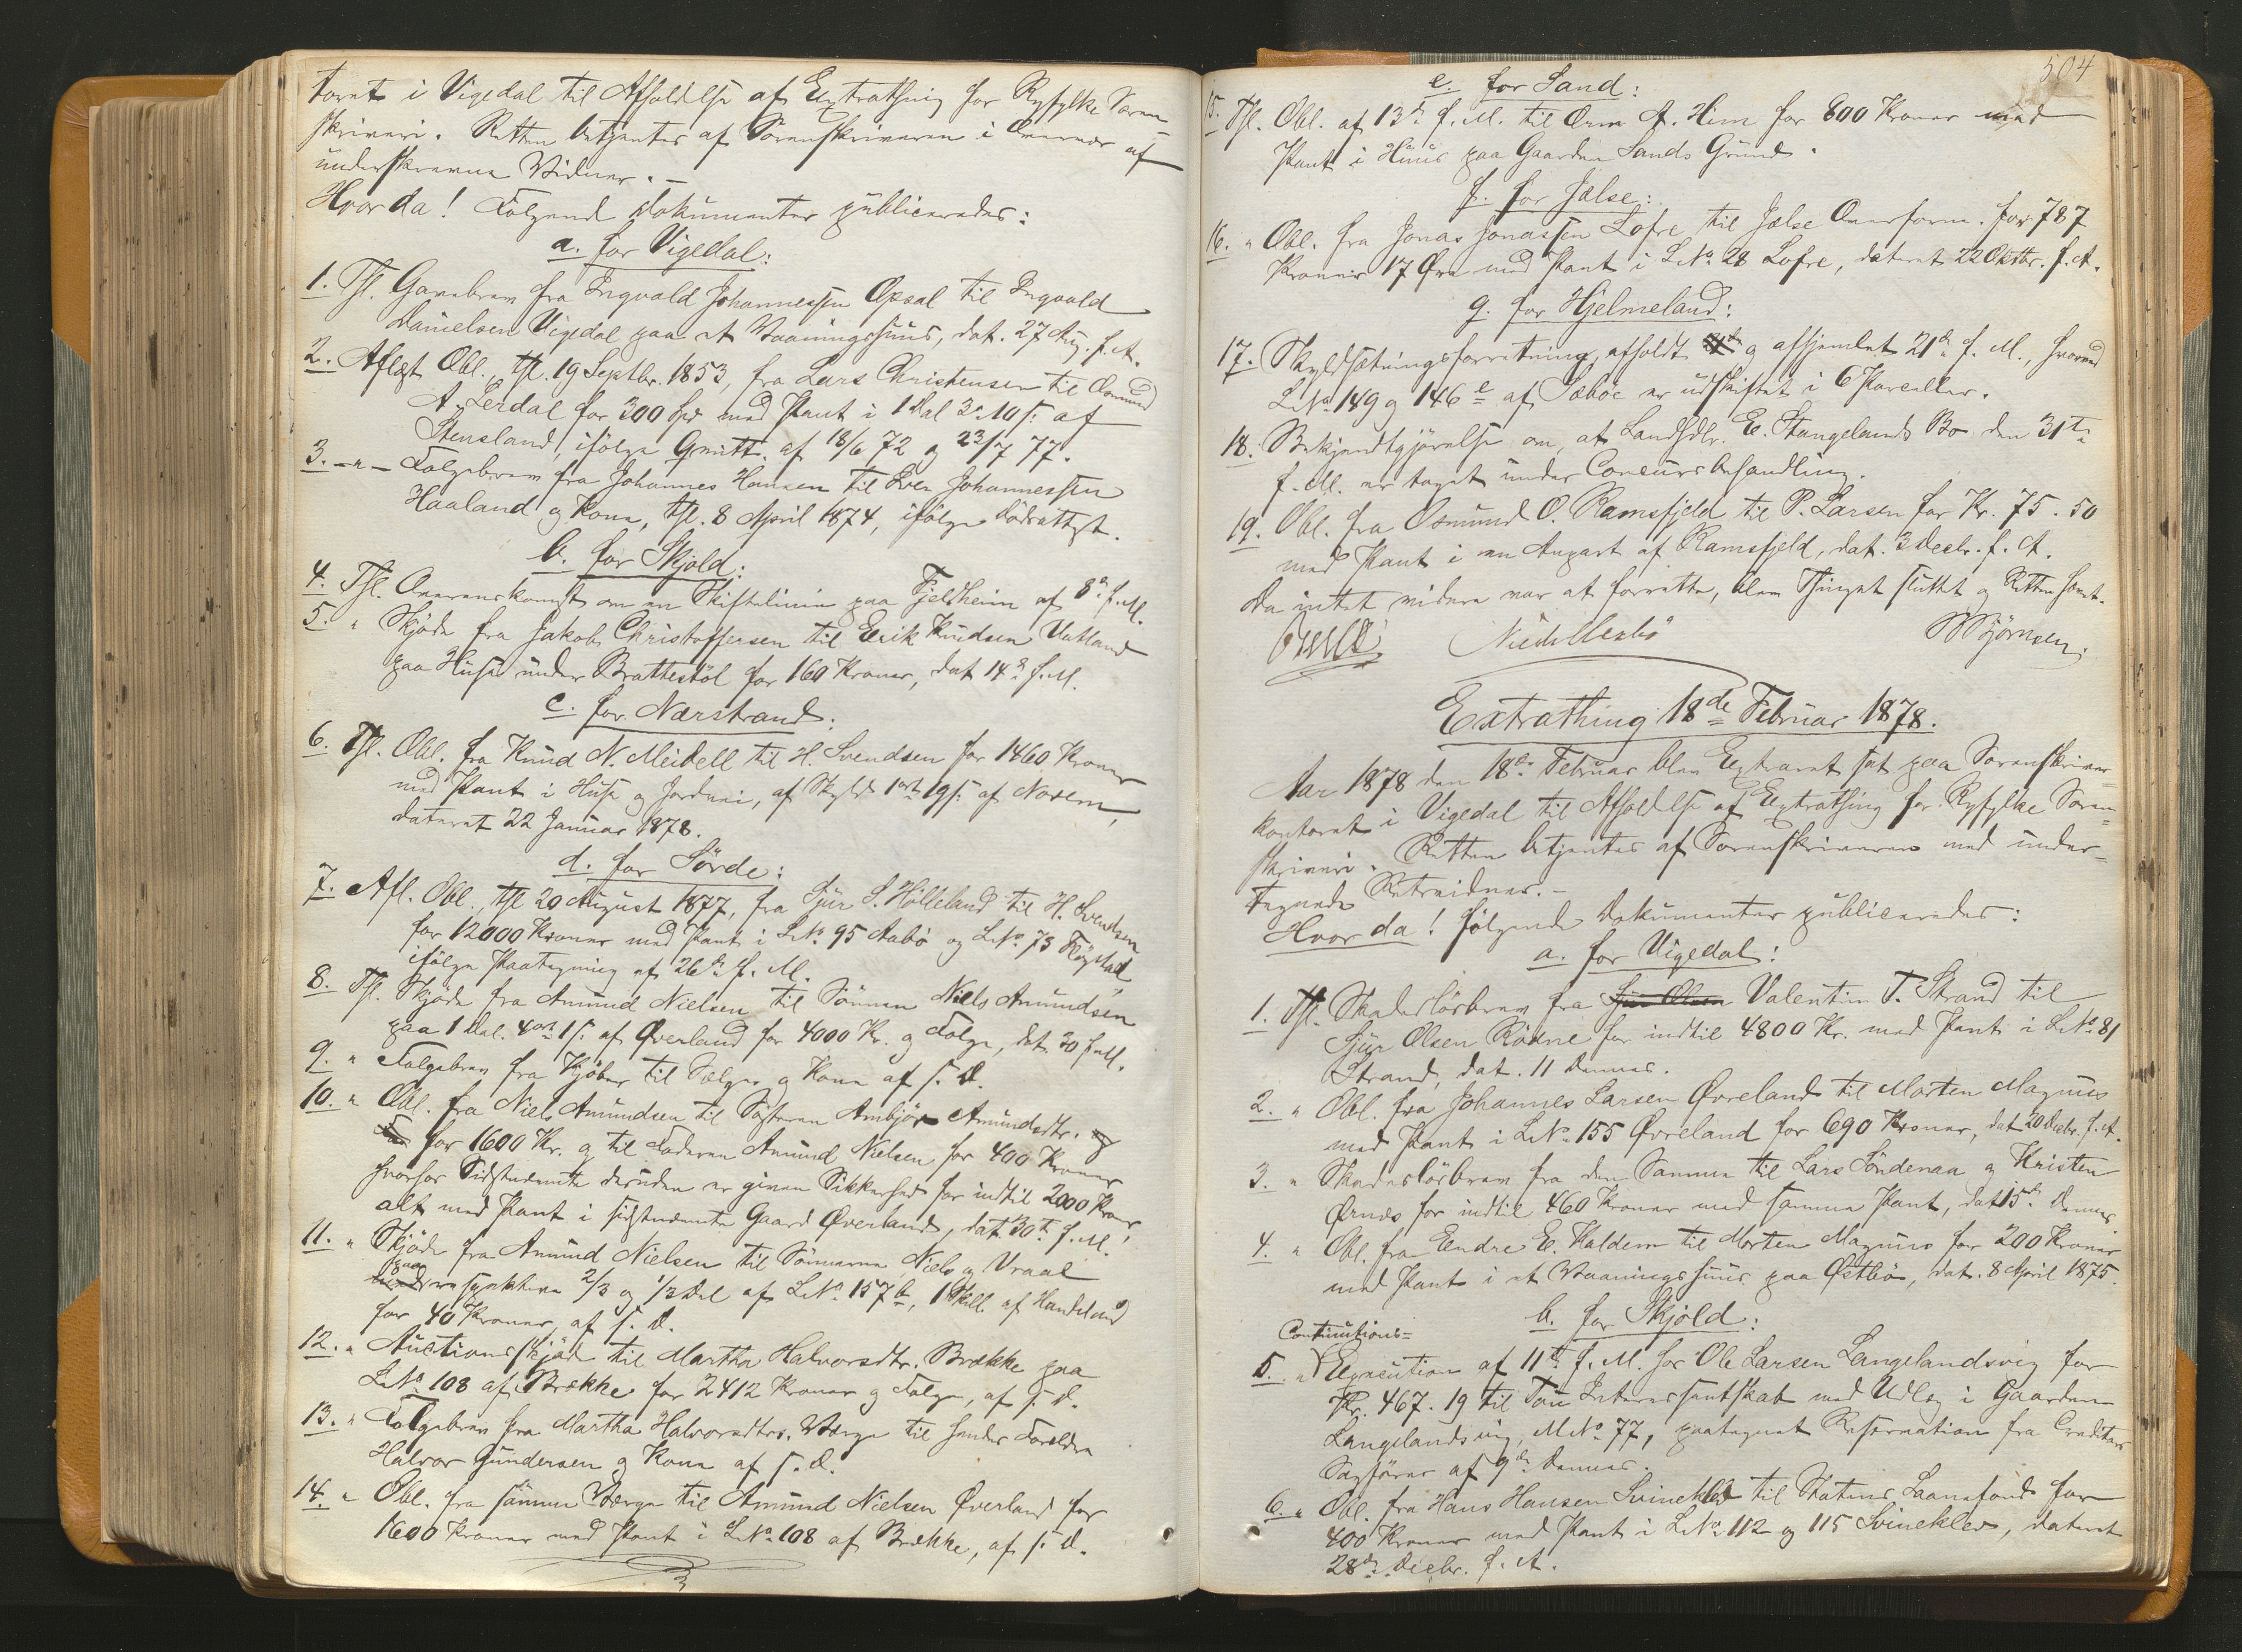 toret i Vigedal til Afholdelse af Extrathing for Ryfylke Soren-
skriveri. Retten betjentes af Sorenskriveren i Overvær af
underskrevne Vidner. -
Hvorda! Følgende Dokumenter publiceredes:
a. for Vigedal:
1. Thl. Gavebrev fra Ingvald Johannessen Opsal til Ingvald
Danielsen Vigedal paa et Vaaningshuus, dat. 27 Aug. f. A.
2. Aflæst Obl., thl. 19 Septbr. 1853, fra Lars Christensen til Osmund
A. Lerdal for 300 Spd med Pant i 1 Dal 3 o 10 s. af
Stensland, ifølge Qvitt. af 18/6 72 og 23/7 77.
3. -"- Følgebrev fra Johannes Hansen til Iver Johannessen
Haaland og Kone, thl. 8 April 1874, ifølge Dødsattest.
b. for Skjold:
4. Thl. Overenskomst om en Skiftelinie paa Fjeldheim af 8de f. M.
5. " Skjøde fra Jakob Christoffersen til Eerik Knudsen Vatland
paa Huse under Brattestöl for 160 Kroner, dat 14de f. M.
c. for Nærstrand:
6. Thl. Obl. fra Knud N. Meidell til H. Svendsen for 1460 Kroner
med Pant i Huse og Jordvei, af Skyld 1 ort 19 s. af Norem,
dateret 22 Januar 1878.
d. for Sövde:
7. Afl. Obl., thl 20 August 1877, fra Sjur S. Hölleland til H. Svendsen
for 12000 Kroner med Pant i LNo. 95 Aabö og LNo. 73 Fløgstad,
ifølge Paategning af 26de f. M.
8. Thl. Skjøde fra Amund Nielsen til Sønnen Niels Amundsen
paa 1 Dal. 4 ort 1 s. af Øverland for 4000 Kr. og Følge, dat. 30 f. M.
9. " Følgebrev fra Kjøber til Sælger og Kone af s. D.
10. " Obl. fra Niels Amundsen til Søsteren Ambjør Amundsdtr. og
for 1600 Kr. og til Faderen Amund Nielsen for 400 Kroner,
hvorhos Sidstnævnte desuden er given Sikkerhed for indtil 2000 Kroner,
alt med Pant i sidstnævnte Gaard Øverland, dat. 30te f. M.
11. " Skjøde fra Amund Nielsen til Sønnerne Niels og Vraal
paa respektive 2/3 og 1/3 Del af LNo. 157 b, 1 Skill. af Handeland
for 40 Kroner, af s. D.
12. " Auctionsskjøde til Martha Halvorsdtr. Brække paa
LNo. 108 af Brække for 2412 Kroner og Følge, af s. D.
13. " Følgebrev fra Martha Halvorsdtrs. Værge til hendes Forældre
Halvor Gundersen og Kone af s. D.
14. " Obl. fra samme Værge til Amund Nielsen Øverland for
1600 Kroner med Pant i LNo. 108 af Brække, af s. D.
504
e. for Sand:
15. Thl. Obl. af 13de f. M. til Orm A. Hiim for 800 Kroner med
Pant i Huus paa Gaarden Sands Grund.
f. for Jælse:
16. " Obl. fra Jonas Jonassen Lofre til Jælse Overform. for 787
Kroner 17 Øre med Pant i LNo. 28 Lofre, dateret 22 Oktbr. f. A.
g. for Hjelmeland:
17. Skyldsætningsforretning, afholdt og afhjemlet 21de f. M., hvorved
LNo. 149 og 146 e af Sæbøe er udskiftet i 6 Parceller.
18. Bekjendtgjørelse om, at Landhdlr. E. Stangelands Bo den 31te
f. M. er taget under Concursbehandling.
19. Obl. fra Osmund O. Ramsfjeld til P. Larsen for Kr. 75.50
med Pant i en Anpart af Ramsfjeld, dat. 3 Decbr. f. A.
Da intet videre var at forrette, blev Thinget sluttet og Retten hævet.
Bjørnsen.
Extrathing 18de Februar 1878.
Aar 1878 den 18de Februar blev Extraret sat paa Sorenskriver-
kontoret i Vigedal til Afholdelse af Extrathing for Ryfylke Soren-
skriveri. Retten betjentes af Sorenskriveren med under-
tegnede Retsvidner. -
Hvorda! følgende Dokumenter publiceredes:
a. for Vigedal:
1. Thl. Skadesløsbrev fra Valentin T. Strand til
Sjur Olsen Rödne for indtil 4800 Kr. med Pant i LNo. 81
Strand, dat. 11 Dennes.
2. " Obl. fra Johannes Larsen Øvreland til Morten Magnus
med Pant i LNo. 155 Øvreland for 690 Kroner, dat 20 Decbr. f. A.
3. " Skadesløsbrev fra den Samme til Lars Söndenaa og Kristen
Ørnes for indtil 460 Kroner med samme Pant, dat 15de Dennes.
4. " Obl. fra Endre E. Haldem til Morten Magnus for 200 Kroner
med Pant i et Vaaningshuus paa Østbø, dat. 8 April 1875.
b. for Skjold:
Continutions-
5. " Execution af 11te f. M. hos Ole Larsen Langelandsvig for
Kr. 467.19 til Tou Interessentskab med Udlæg i Gaarden
Langelandsvig, MNo. 77, paategnet Reservation fra Creditors
Sagfører af 9de Dennes.
6. " Obl. fra Hans Hansen Svinekled til Statens Laanefond for
400 Kroner med Pant i LNo. 112 og 115 Svinekled, dateret
28de Decbr. f. A.